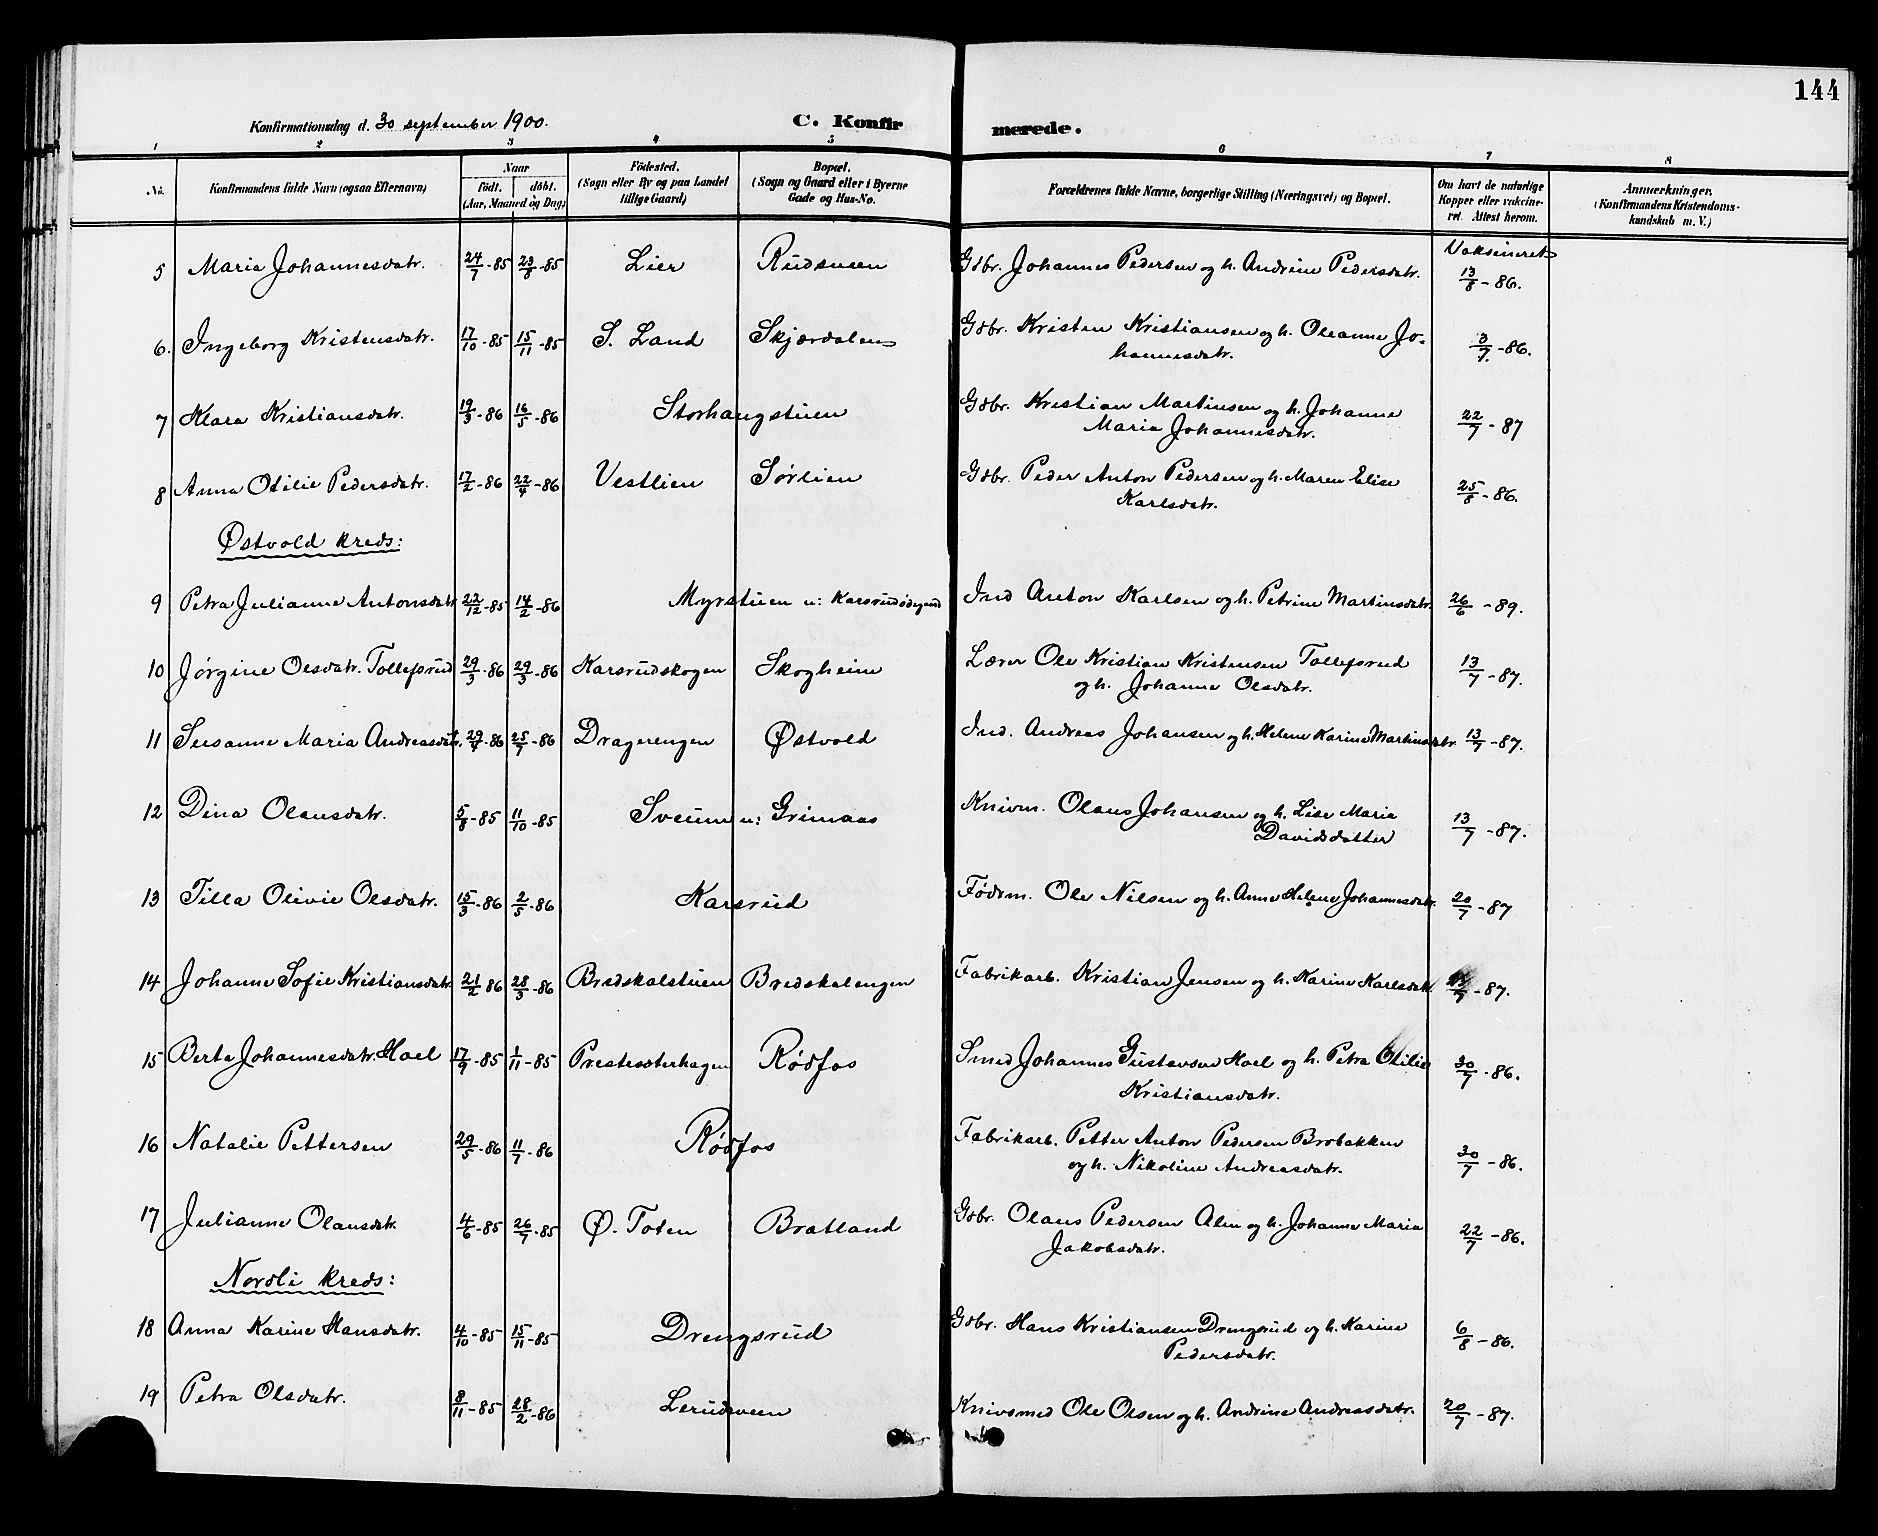 144
Konfirmationsdag d. 30 september 1900. C. Konfirmerede.
1 2 3 4 5 6 7 8
No. Konfirmandens fulde Navn (ogsaa Efternavn) Naar født. døbt. (Aar, Maaned og Dag) Fødested. (Sogn eller By og paa Landet tillige Gaard) Bopæl. (Sogn og Gaard eller i Byerne Gade og Hus-No. Forældrenes fulde Navne, borgerlige Stilling (Næringsvei) og Bopæl. Om havt de naturlige Kopper eller vakcineret. Attest herom. Anmærkninger. (Konfirmandens Kristendomskundskab m. V.)
5 Maria Johannesdatr. 24/7-85 23/8-85 Lier Rudsveen Gdbr. Johannes Pedersen og h. Andrine Pedersdatr. Vaksineret 13/8-86.
6. Ingeborg Kristensdatr. 17/10-85 15/11-85 S. Land Skjærdalen Gdbr. Kristen Kristiansen og h. Oleanne Johannesdatr. 3/7-86.
7 Klara Kristiansdatr. 19/3-86 16/5-86 Storhaugstuen Gdbr. Kristian Martinsen og h. Johanne Maria Johannesdatr. 22/7-87
8 Anna Otilie Pedersdatr. 17/2-86 22/4-86 Vestlien Sørlien Gdbr. Peder Anton Pedersen og h. Maren Elise Karlsdatr. 25/8-86.
Østvold kreds:
9 Petra Julianne Antonsdatr 22/12-85 14/2-86 Myrstuen u: Karsrudødegaard Ind Anton Karlsen og h. Petrine Martinsdatr. 26/6-89.
10 Jørgine Olsdatr. Tollefsrud 29/3-86 29/3-86 Karsrudskogen Skogheim Lærer Ole Kristian Kristensen Tollefsrud og h. Johanne Olsdatr. 13/7-87.
11 Susanne Maria Andreasdatr. 29/4-86 25/7-86 Dragerengen Østvold Ind. Andreas Johansen og h. Helene Karine Martinsdatr 13/7-87.
12 Dina Olausdatr. 5/8-85 11/10-85 Sveum u: Grimaas Knivm. Olaus Johansen og h. Lise Maria Davidsdatter 13/7-87.
13 Tilla Olivie Olsdatr. 15/3-86 2/5-86 Karsrud Fødm. Ole Nilsen og h. Anne Helene Johannesdatr. 20/7-87
14 Johanne Sofie Kristiansdatr 21/2 86 28/3-86 Bredskalstuen Bredskalengen Fabrikarb. Kristian Jensen og h. Karine Karlsdatr. -87.
15 Berta Johannesdatr. Hoel 17/9-85 1/11-85 Prestesæterhagen Rødfos Smed Johannes Gustavsen Hoel og h. Petra Otilie Kristiansdatr. 30/7-86.
16 Natalie Pettersen 29/5-86 11/7-86 Rødfos Fabrikarb. Petter Anton Pedersen Brobakken og h. Nikoline Andreasdatr. 30/7-86.
17 Julianne Olausdatr. 4/6-85 26/7-85 Ø. Toten Bratland Gdbr. Olaus Pedersen Alm og h. Johanne Maria Jakobsdatr. 22/7-86.
Nordli kreds:
18 Anna Karine Hansdatr. 4/10-85 15/11-85 Drengsrud Gdbr. Hans Kristiansen Drengsrud og h. Karine Pedersdatr. 6/8-86.
19 Petra Olsdatr. 8/11-85 28/2-86 Lerudsveen Knivsmed Ole Olsen og h. Andrine Andreasdatr. 20/7-87.